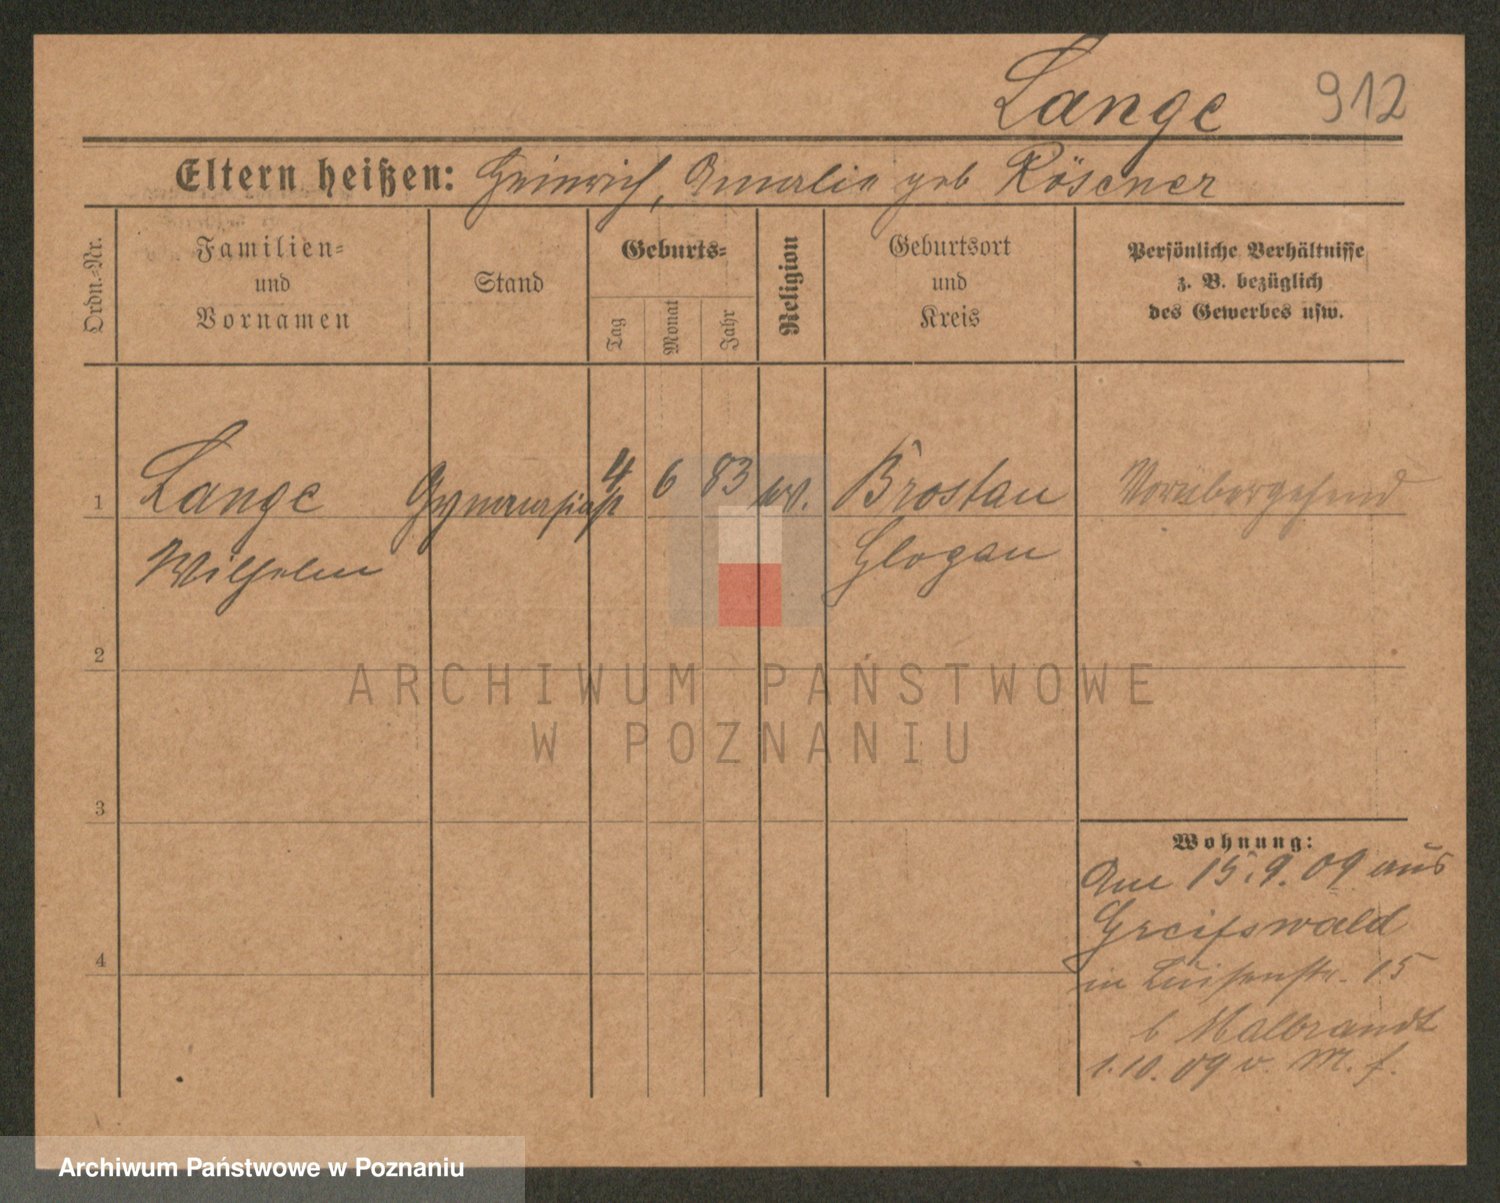 Lange 912
Eltern heißen: Heinrich, Amalie geb Rösener
Ordn.-Nr.
Familien-
und
Vornamen
Stand
Geburts-
Tag
Monat
Jahr
Religion
Geburtsort
und
Kreis
Persönliche Verhältnisse
z. B. bezüglich
des Gewerbes usw.
1 Lange 4 6 83 ev. Brostau Vorübergehend
Wilhelm Glogau
2
3
4
Wohnung:
Am 15.9.09 aus
Greifswald
in Luisenstr. 15
b Malbrandt
1.10.09 v. M. f.
ARCHIWUM PAŃSTWOWE
W POZNANIU
Archiwum Państwowe w Poznaniu